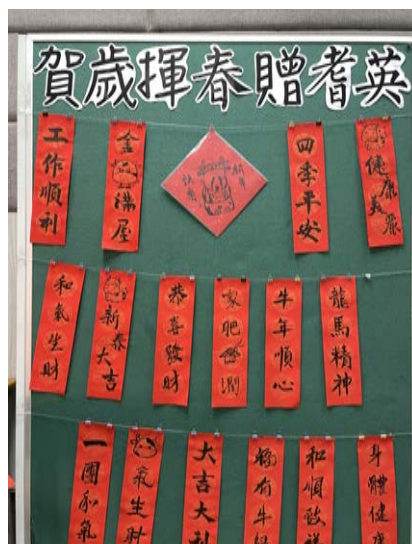 賀歲揮春贈耆英
工作順利
金滿屋
四季平安
健康美麗
和氣生財
新春大吉
恭喜發財
家肥潤
牛年順心
龍馬精神
一團和氣
氣生財
大吉大利
和順致祥
身體健康